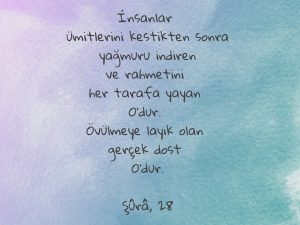 İnsanlar
ümitlerini kestikten sonra
yağmuru indiren
ve rahmetini
her tarafa yayan
O'dur.
Övülmeye layık olan
gerçek dost
O'dur.
Şûrâ, 28